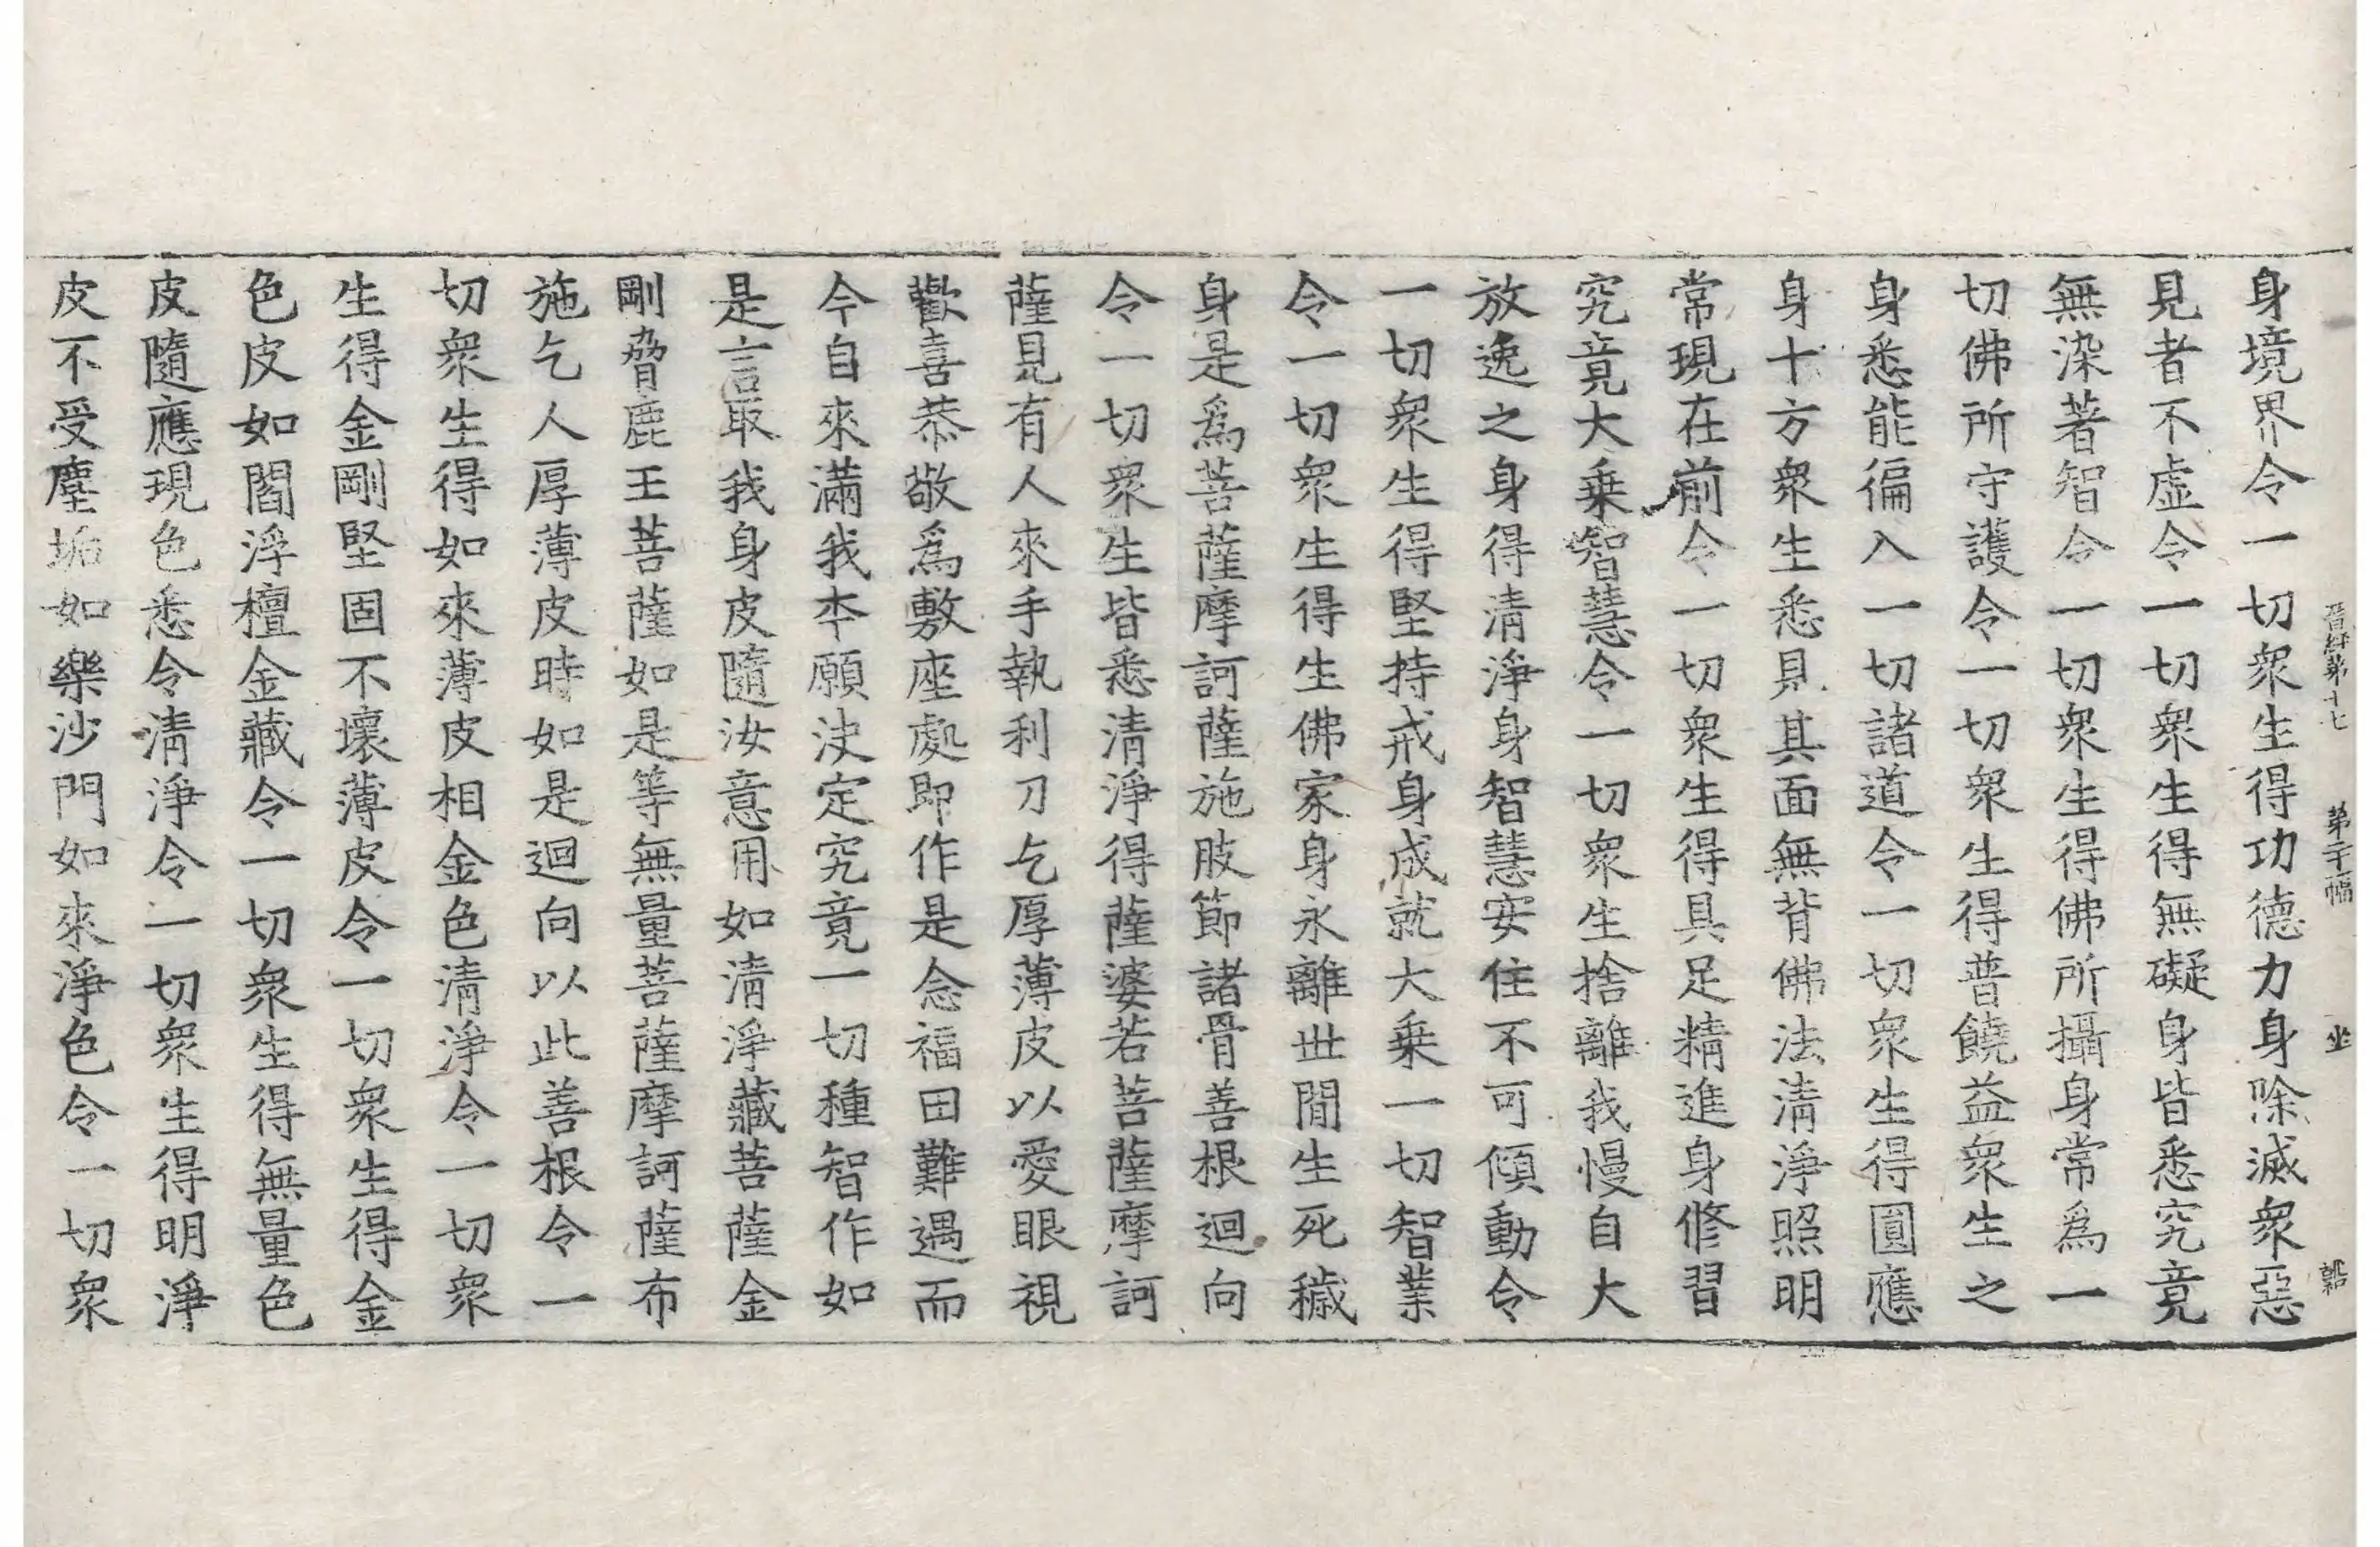 晋經第十七 第二十幅 坐
身境界令一切衆生得功德力身除滅衆惡
見者不虛令一切衆生得無礙身皆悉究竟
無染著智令一切衆生得佛所攝身常爲一
切佛所守護令一切衆生得普饒益衆生之
身悉能徧入一切諸道令一切衆生得圓應
身十方衆生悉見其面無背佛法清淨照明
常現在前令一切衆生得具足精進身修習
究竟大乗智慧令一切衆生捨離我慢自大
放逸之身得清淨身智慧安住不可傾動令
一切衆生得堅持戒身成就大乗一切智業
令一切衆生得生佛家身永離世閒生死穢
身是爲菩薩摩訶薩施肢節諸骨善根迴向
令一切衆生皆悉清淨得薩婆若菩薩摩訶
薩見有人來手執利刀乞厚薄皮以愛眼視
歡喜恭敬爲敷座處即作是念福田難遇而
今自來滿我夲願决定究竟一切種智作如
是言取我身皮隨汝意用如清淨藏菩薩金
剛脅鹿王菩薩如是等無量菩薩摩訶薩布
施乞人厚薄皮時如是迴向以此善根令一
切衆生得如來薄皮相金色清淨令一切衆
生得金剛堅固不壞薄皮令一切衆生得金
色皮如閻浮檀金藏令一切衆生得無量色
皮隨應現色悉令清淨令一切衆生得明淨
皮不受塵垢如樂沙門如來淨色令一切衆